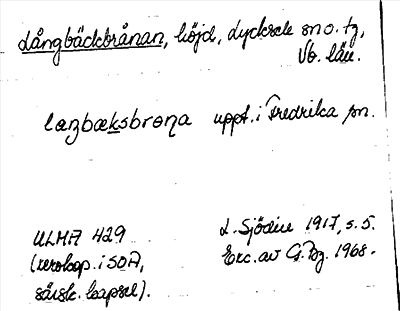 Långbäckbrånan, höjd, Lycksele sn o. tg,
Vb. län.
laŋbæksbrona uppt. i Fredrika sn.
ULMA 429
(verokop. i SOA,
särsk. kapsel).
L. Sjödin 1917, s. 5.
Exc. av G. Bg. 1968.